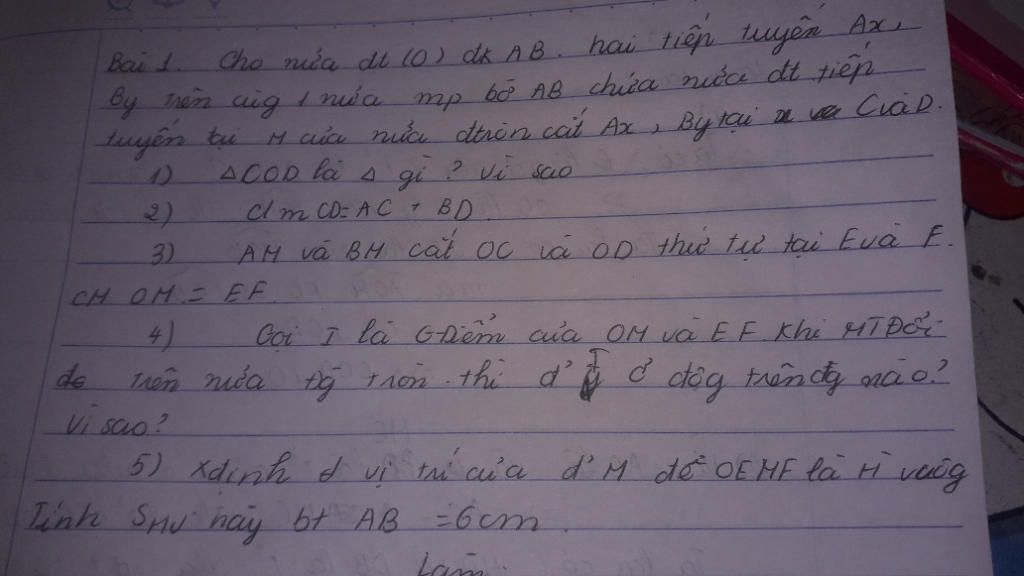 Bài 1. Cho nửa đt (O) đk AB. hai tiếp tuyến Ax,
By trên cùg 1 nửa mp bờ AB chứa nửa đt tiếp
tuyến tại M của nửa đtròn cắt Ax, By tại C và D.
1) △COD là △ gì? Vì sao
2) C/m CD = AC + BD
3) AM và BM cắt OC và OD thứ tự tại E và F.
CM OM = EF
4) Gọi I là GĐiểm của OM và EF. Khi MTĐổi
trên nửa đg tròn thì đ' I ở độg trên đg nào?
Vì sao?
5) Xđịnh đ vị trí của đ' M để OEMF là H vuôg
Tính SHV này bt AB = 6cm.
Làm